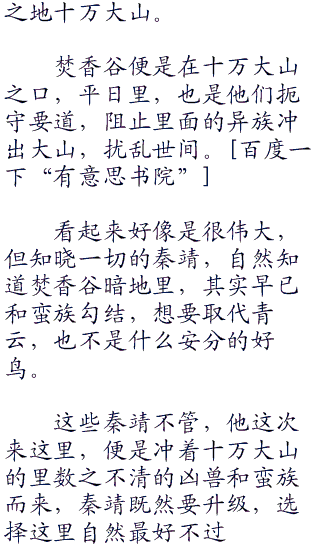 之地十万大山。
焚香谷便是在十万大山
之口，平日里，也是他们扼
守要道，阻止里面的异族冲
出大山，扰乱世间。[百度一
下“有意思书院”]
看起来好像是很伟大，
但知晓一切的秦靖，自然知
道焚香谷暗地里，其实早已
和蛮族勾结，想要取代青
云，也不是什么安分的好
鸟。
这些秦靖不管，他这次
来这里，便是冲着十万大山
的里数之不清的凶兽和蛮族
而来，秦靖既然要升级，选
择这里自然最好不过